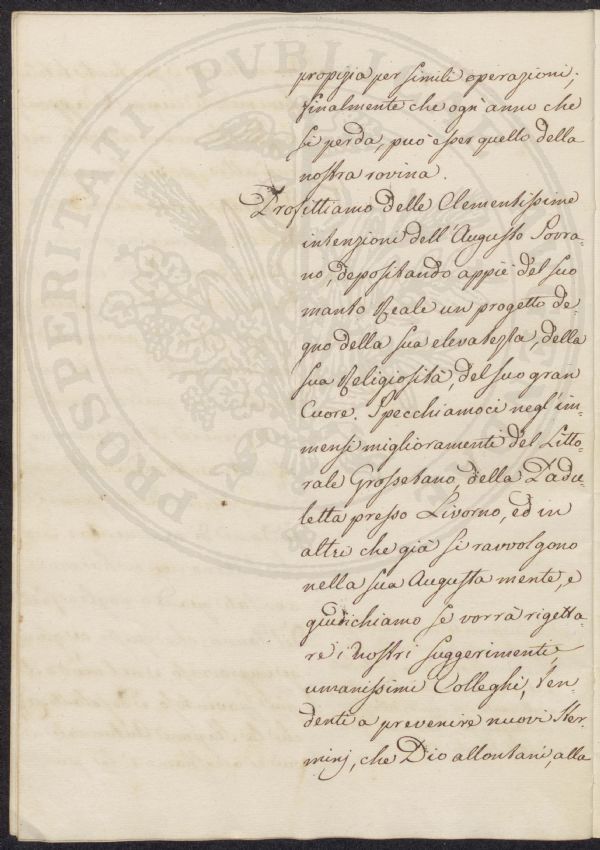 propizia per simili operazioni;
finalmente che ogn'anno che
si perda, può esser quello della
nostra rovina.
Profittiamo delle Clementissime
intenzioni dell'Augusto Sovra-
no, depositando appiè del suo
manto Reale un progetto de-
gno della sua elevatezza, della
sua Religiosità, del suo gran
Cuore. Specchiamoci negl'im-
mensi miglioramenti del Litto-
rale Grossetano, della Padu-
letta presso Livorno, ed in
altri che già si ravvolgono
nella sua Augusta mente, e
giudichiamo se vorrà rigetta-
re i nostri suggerimenti,
umanissimi Colleghi, ten-
denti a prevenire nuovi ster-
minj, che Dio allontani, alla
PROSPERITATI PVBLICAE